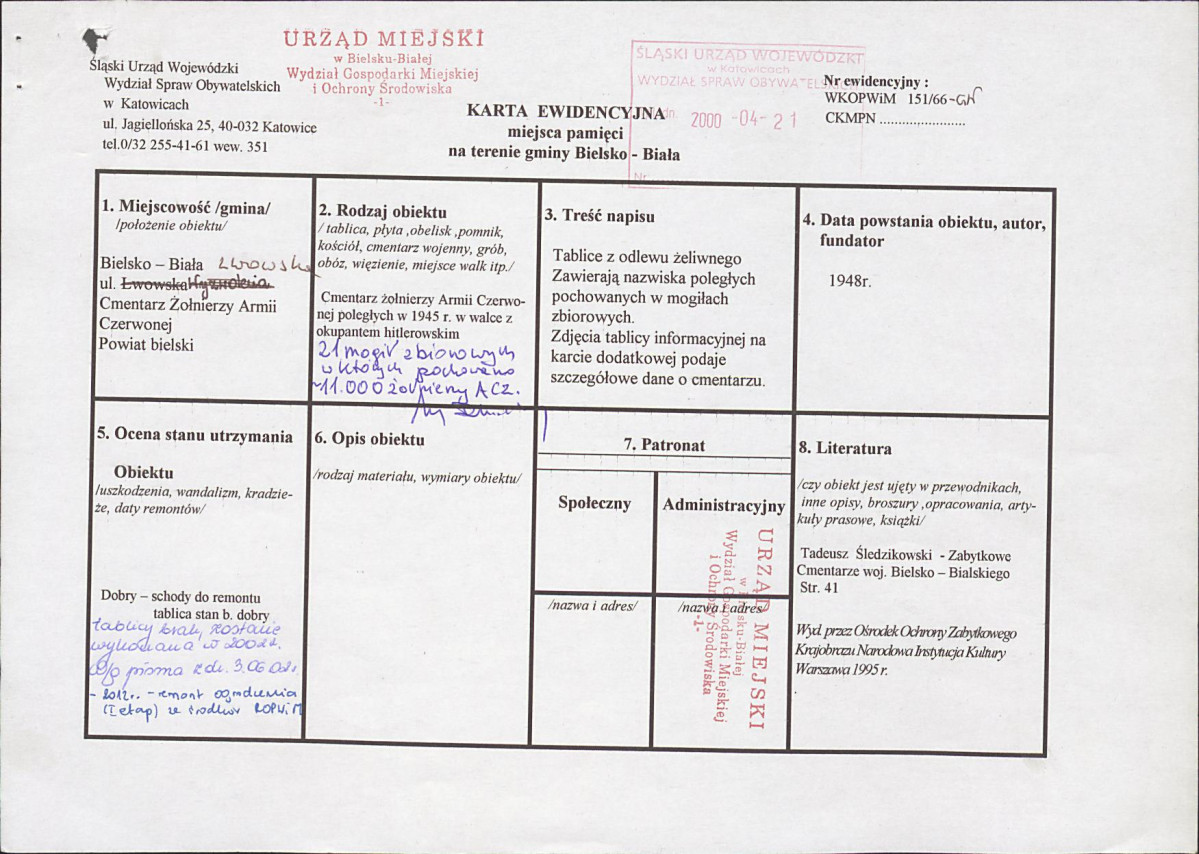 URZĄD MIEJSKI
w Bielsku-Białej
Wydział Gospodarki Miejskiej
i Ochrony Środowiska
-1-
Śląski Urząd Wojewódzki
Wydział Spraw Obywatelskich
w Katowicach
ul. Jagiellońska 25, 40-032 Katowice
tel.0/32 255-41-61 wew. 351
ŚLĄSKI URZĄD WOJEWÓDZKI
w Katowicach
WYDZIAŁ SPRAW OBYWATELSKICH
2000 -04- 21
Nr
Nr ewidencyjny :
WKOPWiM 151/66-GN
CKMPN .......................
KARTA EWIDENCYJNA
miejsca pamięci
na terenie gminy Bielsko - Biała
1. Miejscowość /gmina/
/położenie obiektu/
Bielsko – Biała Lwowska
ul. Lwowska Wyzwolenia
Cmentarz Żołnierzy Armii
Czerwonej
Powiat bielski
2. Rodzaj obiektu
/ tablica, płyta ,obelisk ,pomnik,
kościół, cmentarz wojenny, grób,
obóz, więzienie, miejsce walk itp./
Cmentarz żołnierzy Armii Czerwo-
nej poległych w 1945 r. w walce z
okupantem hitlerowskim
21 mogił zbiorowych
w których pochowano
~11.000 żołnierzy ACz.
3. Treść napisu
Tablice z odlewu żeliwnego
Zawierają nazwiska poległych
pochowanych w mogiłach
zbiorowych.
Zdjęcia tablicy informacyjnej na
karcie dodatkowej podaje
szczegółowe dane o cmentarzu.
4. Data powstania obiektu, autor,
fundator
1948r.
5. Ocena stanu utrzymania
Obiektu
/uszkodzenia, wandalizm, kradzie-
że, daty remontów/
Dobry – schody do remontu
tablica stan b. dobry
tablicy brak, zostanie
wykonana w 2002r.
w/g pisma z dn. 3.06.02r.
- 2012r. - remont ogrodzenia
(I etap) ze środków ROPWiM
6. Opis obiektu
/rodzaj materiału, wymiary obiektu/
7. Patronat
Społeczny
Administracyjny
/nazwa i adres/
/nazwa i adres/
URZĄD MIEJSKI
w Bielsku-Białej
Wydział Gospodarki Miejskiej
i Ochrony Środowiska
-1-
8. Literatura
/czy obiekt jest ujęty w przewodnikach,
inne opisy, broszury ,opracowania, arty-
kuły prasowe, książki/
Tadeusz Śledzikowski - Zabytkowe
Cmentarze woj. Bielsko – Bialskiego
Str. 41
Wyd. przez Ośrodek Ochrony Zabytkowego
Krajobrazu Narodowa Instytucja Kultury
Warszawa 1995 r.